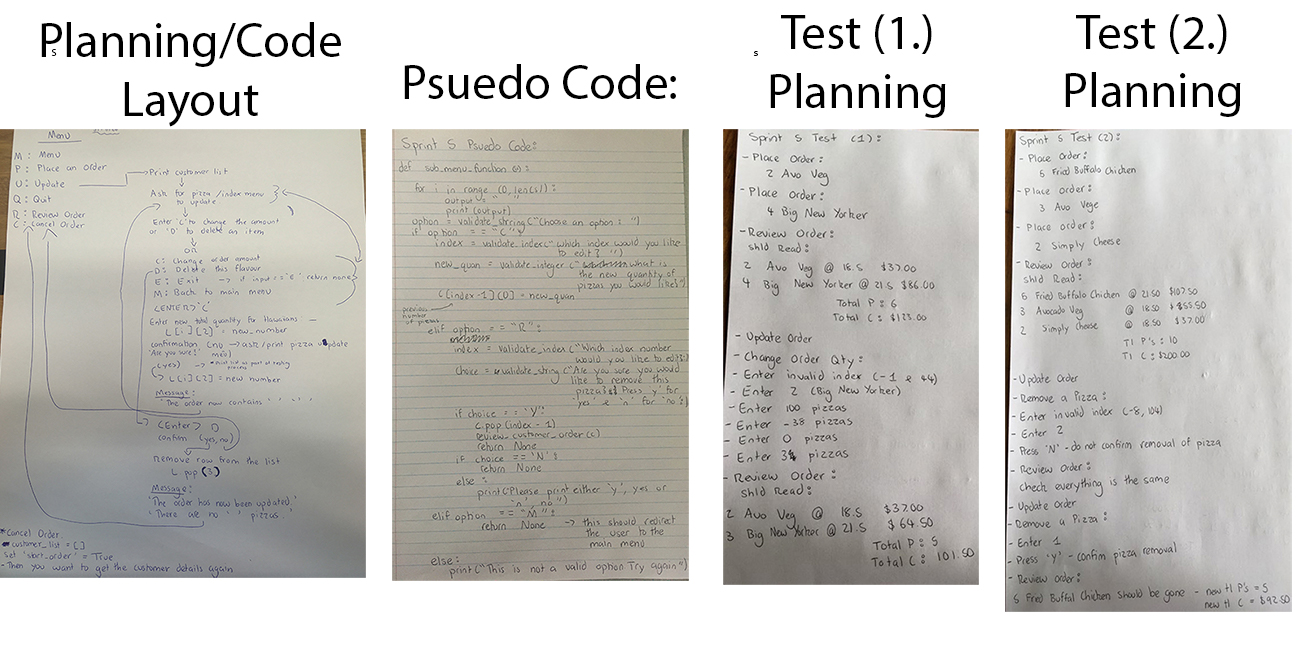 Planning/Code
Layout
s
Menu
M : Menu
P : Place an Order
U : Update
Q : Quit
R : Review Order
C : Cancel Order
Print customer list
Ask for pizza /index menu
to update
Enter 'C' to change the amount
or 'D' to delete an item
or
C : Change order amount
D : Delete this flavour
E : Exit → if input == 'E' return none
M : Back to main menu
<ENTER> 'C'
Enter new total quantity for Hawaiians
L[i][2] = new_number
confirmation (no → ask/print pizza update
'Are you sure!' menu)
(yes)
↳ L[i][2] = new number
Message:
'The order now contains
<Enter> D
confirm (yes, no)
remove row from the list
L pop (3)
Message:
'The order has now been updated,'
'There are no ' ' pizzas.'
*Cancel Order
customer_list = [ ]
set 'start_order' = True
- Then you want to get the customer details again
Psuedo Code:
Sprint 5 Psuedo Code:
def sub_menu_function (c):
for i in range (0, len(s)):
output =
print (output)
option = validate_string ("Choose an option : ")
if option == "C":
index = validate_index (" which index would you like
to edit? ")
new_quan = validate_integer (" what is
the new quantity of
pizzas you would like?")
C[index-1][0] = new_quan
previous
number
of pizzas
elif option == "R":
index = validate_index ("Which index number
would you like to edit:")
choice = validate_string ("Are you sure you would
like to remove this
pizza? Press 'y' for
'yes' & 'n' for 'no':)
if choice == 'Y'
c.pop (index - 1)
review_customer_order (c)
return None
if choice == 'N':
return None
else :
print("Please print either 'y', yes or
'n', no")
elif option == "M":
return None → this should redirect
the user to the
main menu
else:
print ("This is not a valid option Try again")
s
Test (1.)
Planning
Sprint 5 Test (1):
- Place Order :
2 Avo Veg
- Place Order:
4 Big New Yorker
- Review Order:
shld Read:
2 Avo Veg @ 18.5 $37.00
4 Big New Yorker @ 21.5 $86.00
Total P : 6
Total C : $123.00
- Update Order
- Change Order Qty:
- Enter invalid index (-1 & 44)
- Enter 2 (Big New Yorker)
- Enter 100 pizzas
- Enter -38 pizzas
- Enter 0 pizzas
- Enter 3 pizzas
- Review Order :
shld Read:
2 Avo Veg @ 18.5 $37.00
3 Big New Yorker @ 21.5 $64.50
Total P : 5
Total C : 101.50
Test (2.)
Planning
Sprint 5 Test (2):
- Place Order:
5 Fried Buffalo Chicken
- Place order:
3 Avo Vege
- Place order:
2 Simply Cheese
- Review Order:
shld Read:
5 Fried Buffalo Chicken @ 21.50 $107.50
3 Avocado Veg @ 18.50 $55.50
2 Simply Cheese @ 18.50 $37.00
Tl P's : 10
Tl C : $200.00
- Update Order
- Remove a Pizza :
- Enter invalid index (-8, 104)
- Enter 2
- Press 'N' - do not confirm removal of pizza
- Review Order:
Check everything is the same
- Update Order
- Remove a Pizza :
- Enter 1
- Press 'y' - confim pizza removal
- Review Order:
5 Fried Buffal Chicken should be gone - new tl P's = 5
new tl C = $92.50